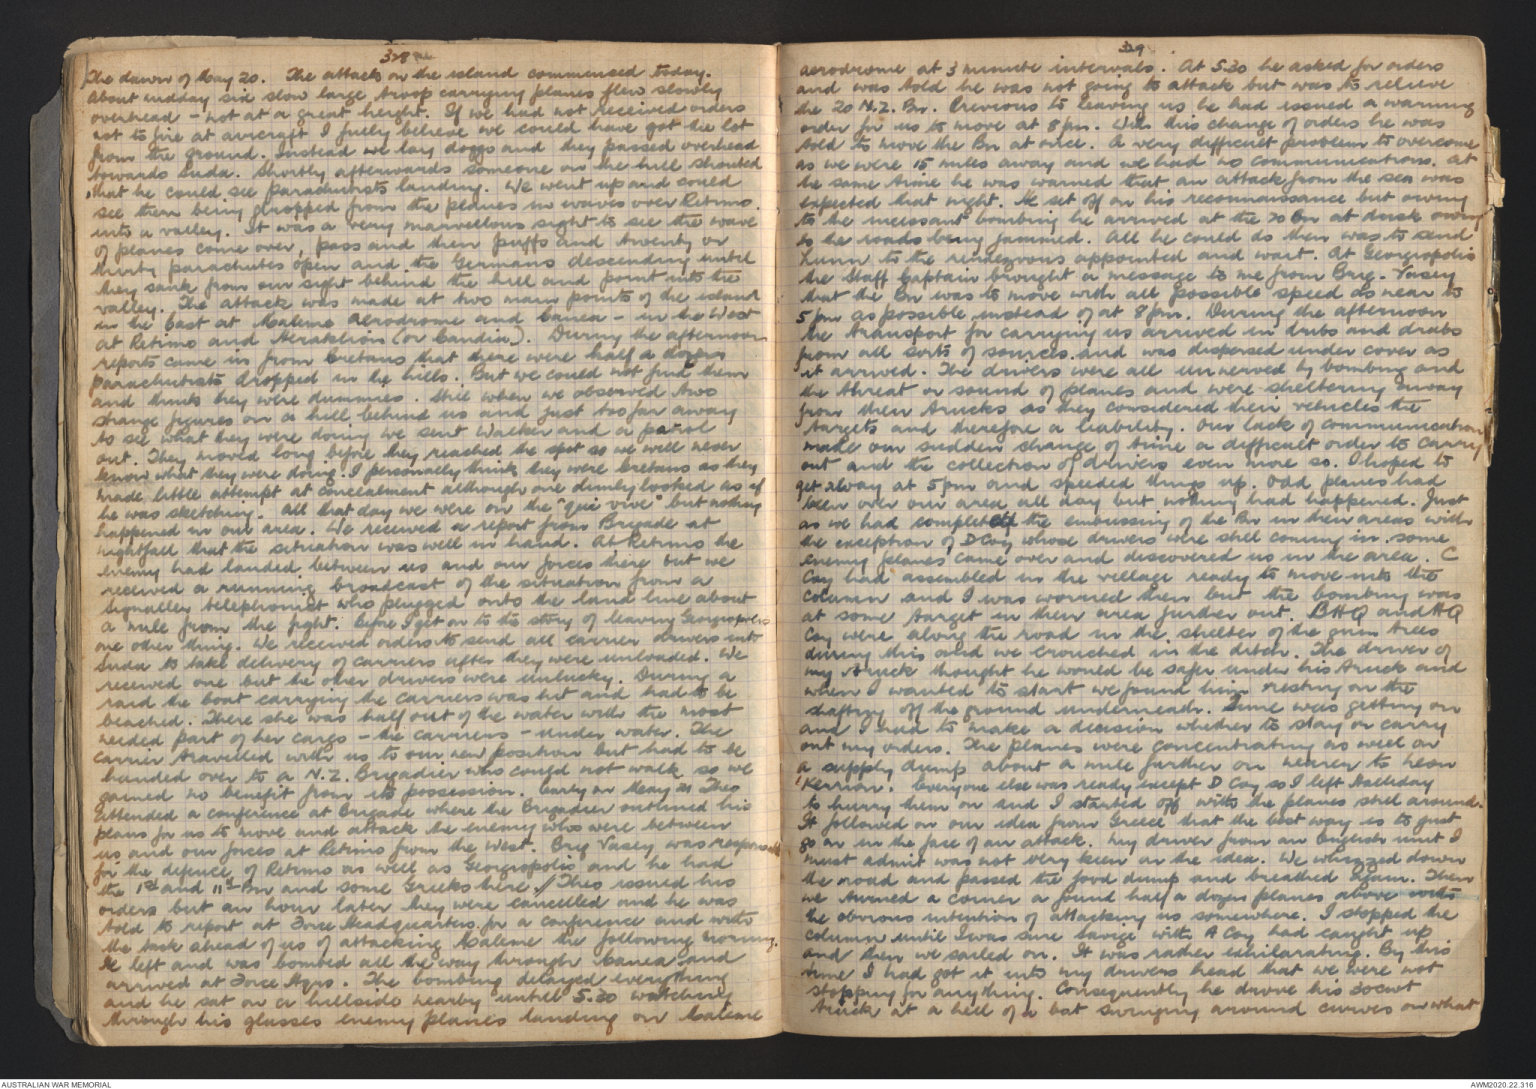 328
The dawn of May 20. The attacks on the island commenced today.
About midday six slow large troop carrying planes flew slowly
overhead - not at a great height. If we had not received orders
not to fire at aircraft I fully believe we could have got the lot
from the ground. Instead we lay doggo and they passed overhead
towards Suda. Shortly afterwards someone on the hill shouted
that he could see parachutists landing. We went up and could
see them being dropped from the planes in waves over Retimo.
into a valley. It was a very marvellous sight to see the wave
of planes come over, pass and then puffs and twenty or
thirty parachutes open and the Germans descending until
they sank from our sight behind the hill and point into the
valley. The attack was made at two main points of the island
in the East at Maleme Aerodrome and Canea - in the West
at Retimo and Heraklion (or Candia). During the afternoon
reports came in from Cretans that there were half a dozen
parachutists dropped in the hills. But we could not find them
and think they were dummies. Still when we observed two
strange figures on a hill behind us and just too far away
to see what they were doing we sent Walker and a patrol
out. They moved long before they reached the spot so we will never
know what they were doing. I personally think they were Cretans as they
made little attempt at concealment although one dimly looked as if
he was sketching. All that day we were on the "qui vive" but nothing
happened in our area. We received a report from Brigade at
nightfall that the situation was well in hand. At Retimo the
enemy had landed between us and our forces there but we
received a running broadcast of the situation from a
signaller telephonist who plugged onto the land line about
a mile from the fight. Before I get on to the story of leaving Georgiopolis
one other thing. We received orders to send all carrier drivers into
Suda to take delivery of carriers after they were unloaded. We
received one but the other drivers were unlucky. During a
raid the boat carrying the carriers was hit and had to be
beached. There she was half out of the water with the most
needed part of her cargo - the carriers - under water. The
carrier travelled with us to our new position but had to be
handed over to a N.Z. Brigadier who could not walk so we
gained no benefit from its possession. Early on May 21 Theo
attended a conference at Brigade where the Brigadier outlined his
plans for us to move and attack the enemy who were between
us and our forces at Retimo from the West. Brig Vasey was responsible
for the defence of Retimo as well as Georgiopolis and he had
the 1st and 11th Bn and some Greeks there. / Theo issued his
orders but an hour later they were cancelled and he was
told to report at Force Headquarters for a conference and with
the task ahead of us of attacking Maleme the following morning.
He left and was bombed all the way through Canea and
arrived at Force Hqrs. The bombing delayed everything
and he sat on a hillside nearby until 5.30 watching
through his glasses enemy planes landing on Maleme
329
aerodrome at 3 minute intervals. At 5.30 he asked for orders
and was told he was not going to attack but was to relieve
the 20 N.Z. Bn. Previous to leaving us he had issued a warning
order for us to move at 8 pm. With this change of orders he was
told to move the Bn at once. A very difficult problem to overcome
as we were 15 miles away and we had no communications. At
the same time he was warned that an attack from the sea was
expected that night. He set off on his reconnaissance but owing
to the incessant bombing he arrived at the 20 Bn at dusk owing
to the roads being jammed. All he could do then was to send
Lunn to the rendezvous appointed and wait. At Georgiopolis
the Staff Captain brought a message to me from Brig. Vasey
that the Bn was to move with all possible speed as near to
5 pm as possible instead of at 8 pm. During the afternoon
the transport for carrying us arrived in dribs and drabs
from all sorts of sources and was dispersed under cover as
it arrived. The drivers were all unnerved by bombing and
the threat or sound of planes and were sheltering away
from their trucks as they considered their vehicles the
targets and therefore a liability. Our lack of communication
made our sudden change of time a difficult order to carry
out and the collection of drivers even more so. I hoped to
get away at 5 pm and speeded things up. Odd planes had
been over our area all day but nothing had happened. Just
as we had completed the embussing of the Bn in their areas with
the exception of D Coy whose drivers were still coming in some
enemy planes came over and discovered us in the area. C
Coy had assembled in the village ready to move into the
column and I was worried then but the bombing was
at some target in their area further out. BHQ and HQ
Coy were along the road in the shelter of the gum trees
during this and we crouched in the ditch. The driver of
my truck thought he would be safer under his truck and
when I wanted to start we found him resting on the
shafting off the ground underneath. Time was getting on
and I had to make a decision whether to stay or carry
out my orders. The planes were concentrating as well on
a supply dump about a mile further on nearer to Neon
Kerrion. Everyone else was ready except D Coy so I left Halliday
to hurry them on and I started off with the planes still around.
It followed on our idea from Greece that the best way is to just
go on in the face of an attack. My driver from an English unit I
must admit was not very keen on the idea. We whizzed down
the road and passed the food dump and breathed again. Then
we turned a corner a found half a dozen planes above with
the obvious intention of attacking us somewhere. I stopped the
column until I was sure Savige with A Coy had caught up
and then we sailed on. It was rather exhilarating. By this
time I had got it into my drivers head that we were not
stopping for anything. Consequently he drove his 30cwt
truck at a hell of a bat swinging around curves on what
AUSTRALIAN WAR MEMORIAL
AWM2020.22.316